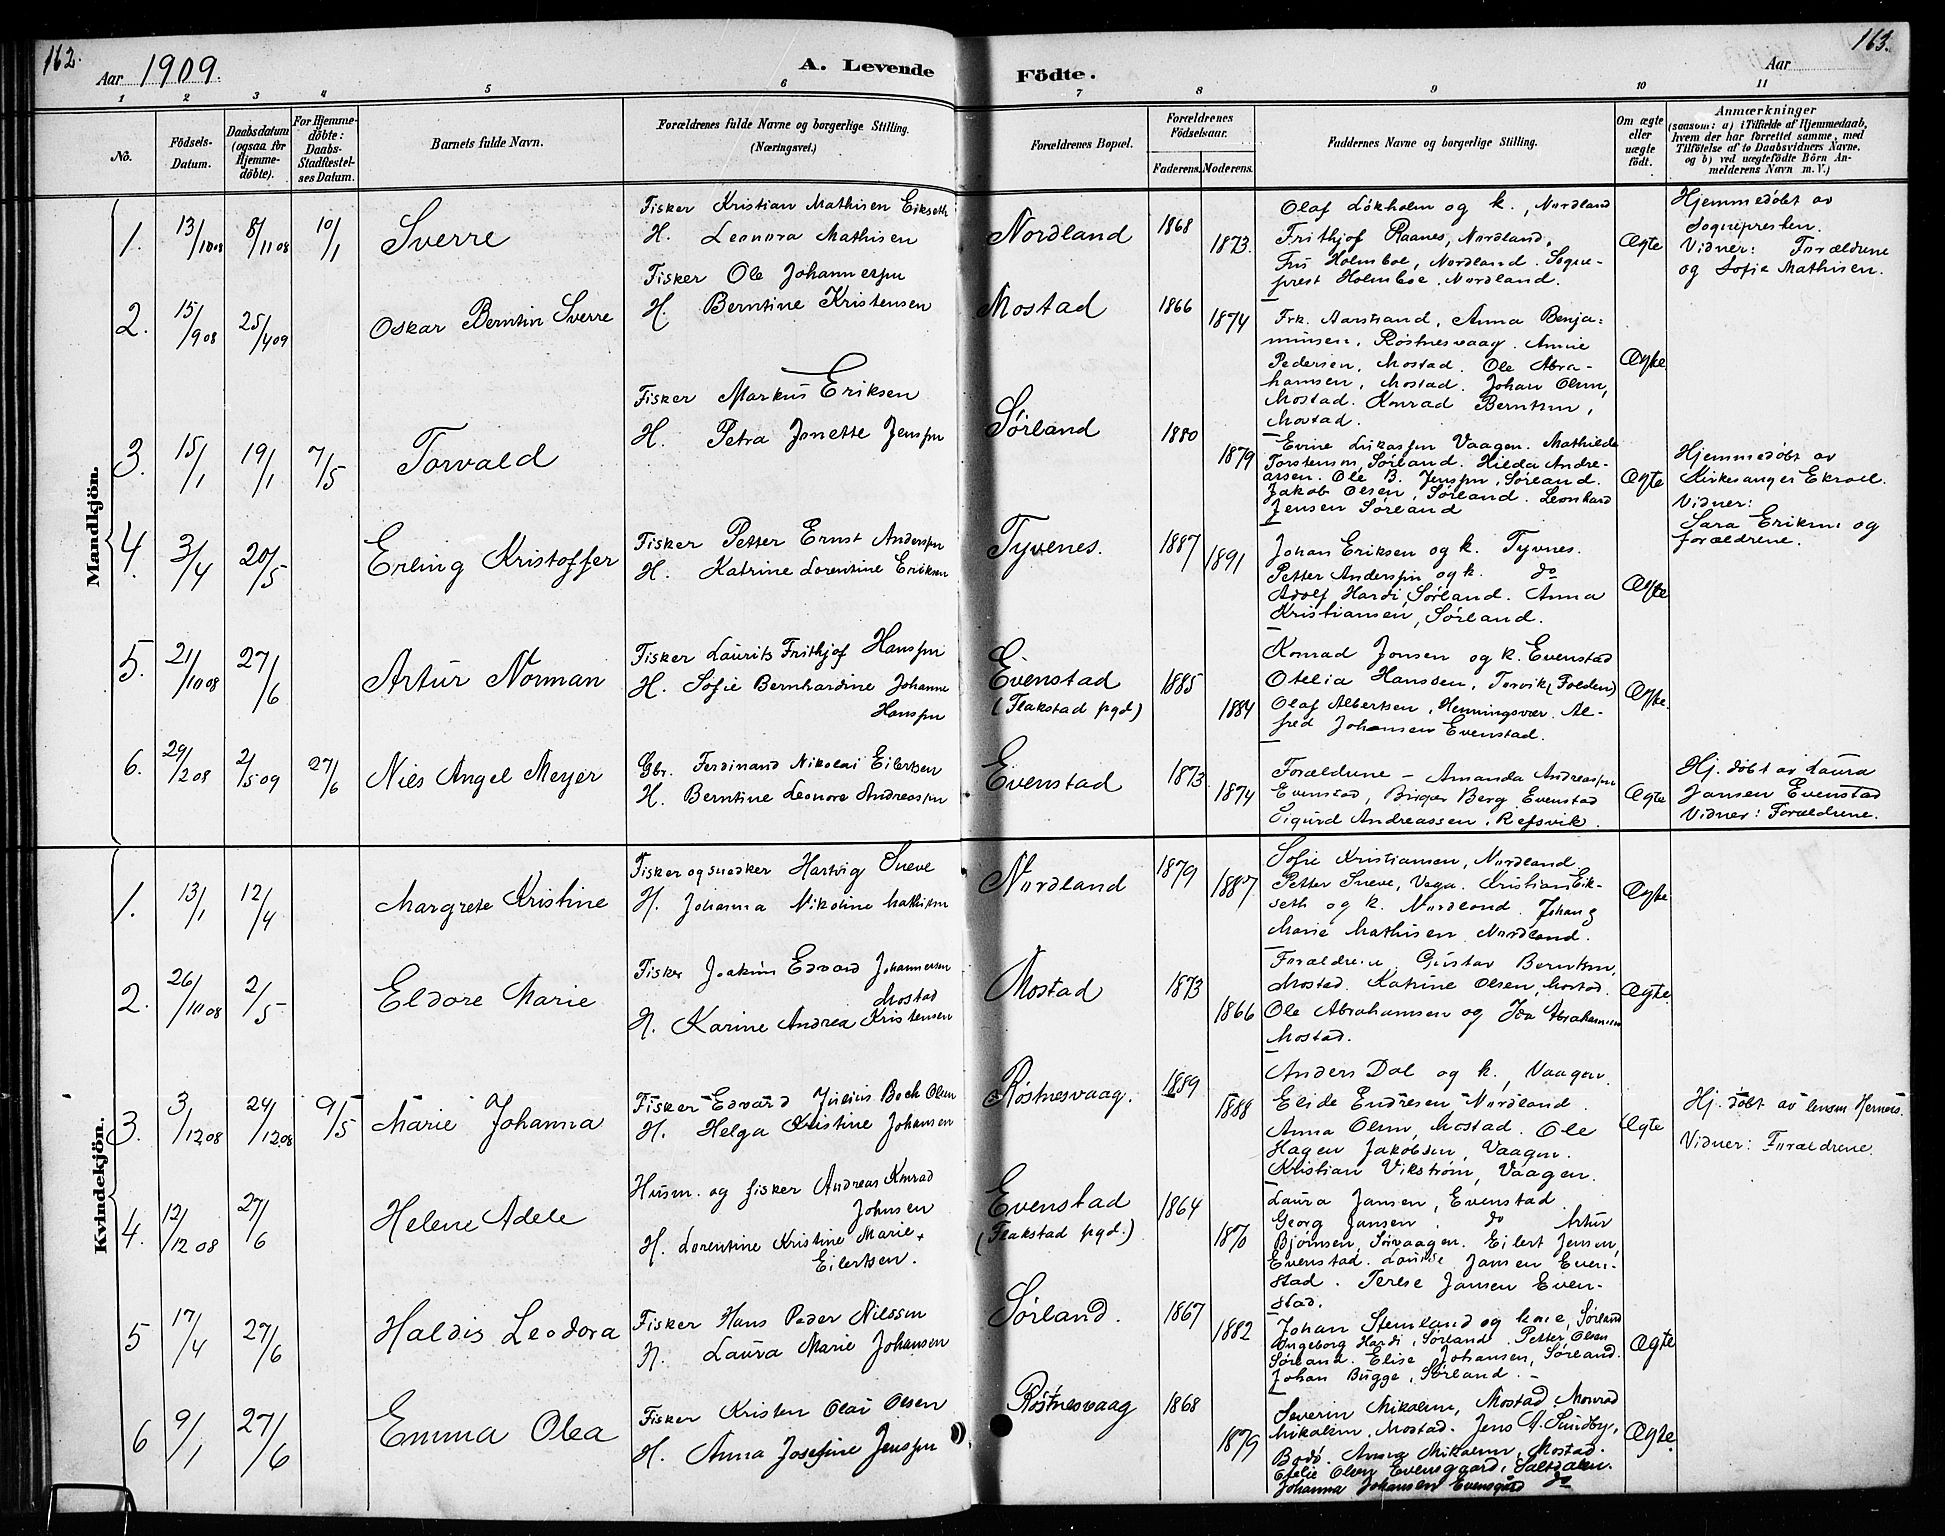 162.
163.
Aar 1909.
A. Levende Födte.
Aar
1 2 3 4 5 6 7 8 9 10 11
No.
Födsels-Datum.
Daabsdatum (ogsaa for Hjemme-döbte).
For Hjemme-döbte: Daabs-Stadfæstel-ses Datum.
Barnets fulde Navn.
Forældrenes fulde Navne og borgerlige Stilling. (Næringsvei.)
Forældrenes Bopæl.
Forældrenes Födselsaar.
Faderens. Moderens.
Faddernes Navne og borgerlige Stilling.
Om ægte eller uægte födt.
Anmærkninger
(saasom: a) i Tilfælde af Hjemmedaab, hvem der har forrettet samme, med Tilföielse af to Daabsvidners Navne. og b) ved uægtefödte Börn An-melderens Navn m. V.)
Mandkjön.
1. 13/10 08 8/11 08 10/1 Sverre
Fisker Kristian Mathisen Eikseth
H. Leonora Mathisen
Nordland 1868 1873.
Olaf Løkholm og k., Nordland
Frithjof Raanes, Nordland,
Fru Holmboe, Nordland. Sogne-
prest Holmboe, Nordland.
Ægte
Hjemmedøbt av
Sognepresten.
Vidner: Forældrene
og Sofie Mathisen.
2. 15/9 08 25/4 09 Oskar Berntin Sverre
Fisker Ole Johannessen
H. Berntine Kristensen
Mostad 1866 1874
Frk. Aarstrand, Anna Benja-
minsen, Røstnesvaag. Annie
Pedersen, Mostad. Ole Abra-
hamsen, Mostad. Johan Olsen,
Mostad. Konrad Berntsen,
Mostad.
Ægte
3. 15/1 19/1 7/5 Torvald
Fisker Markus Eriksen
H. Petra Jonette Jenssen
Sørland 1880 1879
Evine Lukassen Vaagen. Mathilde
Torstensen, Sørland. Hilda Andre-
assen. Ole B. Jenssen, Sørland.
Jakob Olsen, Sørland. Leonhard
Jensen Sørland
Ægte
Hjemmedøbt av
Kirkesanger Ekroll.
Vidner:
Sara Eriksen og
forældrene.
4. 3/4 20/5 Erling Kristoffer
Fisker Petter Ernst Anderssen
H. Katrine Lorentine Eriksen
Tyvenes. 1887 1891
Johan Eriksen og k. Tyvnes.
Petter Anderssen og k. do
Adolf Hardi, Sørland. Anna
Kristiansen, Sørland.
Ægte
5. 21/10 08 27/6 Artur Norman
Fisker Laurits Frithjof Hanssen
H. Sofie Bernhardine Johanne
Hanssen
Evenstad
(Flakstad pgd.) 1885 1884
Konrad Jonsen og k. Evenstad
Otelia Hanssen, Torvik (Folden)
Olaf Albertsen, Henningsvær. Al-
fred Johansen Evenstad.
Ægte.
6. 29/2 08 2/5 09 27/6 Nils Angel Meyer
Gbr. Ferdinand Nikolai Eilertsen
H. Berntine Leonore Andreassen
Evenstad 1873. 1874
Forældrene – Amanda Andreassen
Evenstad, Birger Berg Evenstad
Sigurd Andreassen, Refsvik.
Ægte
Hj. døbt av Laura
Jansen Evenstad
Vidner: Forældrene.
Kvindekjön.
1. 13/1 12/4 Margrete Kristine
Fisker og snedker Hartvig Sneve
H. Johanna Nikoline Mathisen
Nordland 1879 1887
Sofie Kristiansen, Nordland.
Petter Sneve, Vega. Kristian Eik-
seth og k. Nordland. Johan
Marie Mathisen Nordland.
Ægte
2. 26/10 08 2/5 Eldore Marie
Fisker Joakim Edvard Johannessen
Mostad
H. Karine Andrea Kristensen
Mostad 1873 1866
Forældrene. Gustav Berntsen,
Mostad. Katrine Olsen, Mostad.
Ole Abrahamsen og Ida Abrahamsen
Mostad.
Ægte
3. 3/12 08 24/12 08 9/5 Marie Johanna
Fisker Edvard Julius Boch Olsen
H. Helga Kristine Johansen
Røstnesvaag. 1889 1888
Anders Dal og k., Vaagen.
Elide Endresen Nordland
Anna Olsen, Mostad. Ole
Hagen Jakobsen, Vaagen.
Kristian Vikstrøm, Vaagen.
Ægte
Hj. døbt av lensm Hernes.
Vidner: Forældrene.
4. 12/12 08 27/6 Helene Adele
Husm. og fisker Andreas Konrad
Johnsen
H. Lorentine Kristine Marie
Eilertsen.
Evenstad
(Flakstad pgd.) 1864 1870
Laura Jansen, Evenstad.
Georg Jansen, do Artur
Bjørnsen, Sørvaagen. Eilert Jensen,
Evenstad. Louise Jansen Even-
stad. Terese Jansen Even-
stad.
5 17/4 27/6 Haldis Leodora
Fisker Hans Peder Nilssen
H. Laura Marie Johansen
Sørland. 1867 1882
Johan Stemland og lene, Sørland
Ingeborg Hardi, Sørland. Petter Olsen
Sørland. Elise Johansen, Sørland.
Johan Bugge, Sørland.
Ægte
6 9/1 27/6 Emma Olea
Fisker Kristen Olai Olsen
H. Anna Josefine Jenssen
Røstnesvaag 1868 1879
Severin Mikalsen, Mostad Monrad
Mikalsen, Mostad. Jens A. Sundby,
Bodø. Anna Mikalsen, Mostad.
Ofelie Olsen Evensgaard, Saltdalen.
Johanna Johansen Evensgård do
Ægte.